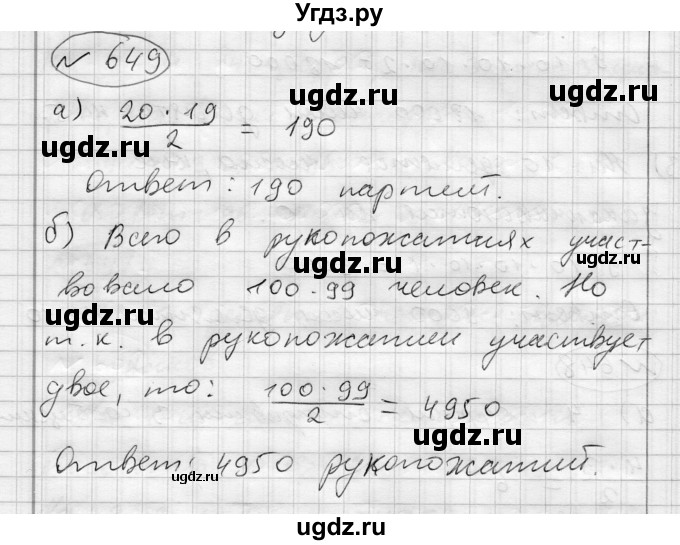 Угдз.ру
№ 649
а) 20 · 19 / 2 = 190
Ответ: 190 партий.
б) Всего в рукопожатиях участ-
вовало 100·99 человек. Но
т.к. в рукопожатии участвует
двое, то: 100·99 / 2 = 4950
Ответ: 4950 рукопожатий.
ugdz.ru
ugdz.ru
ugdz.ru
ugdz.ru
ugdz.ru
ugdz.ru
ugdz.ru
ugdz.ru
ugdz.ru
ugdz.ru
ugdz.ru